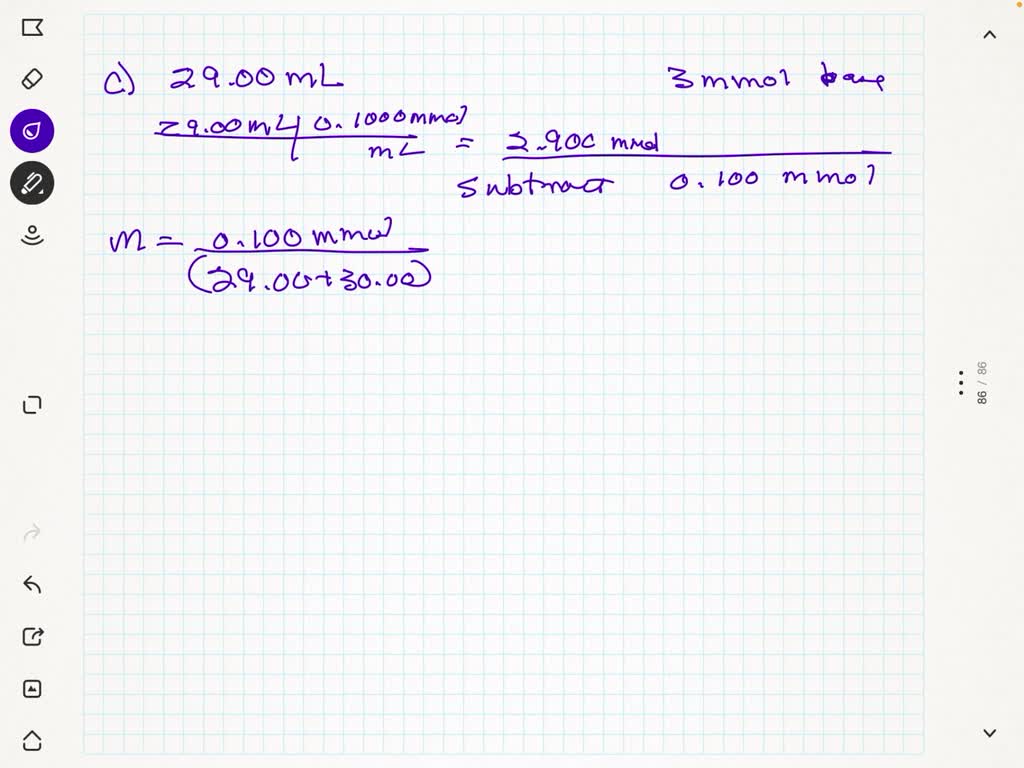 c) 29.00 mL 3 mmol base
29.00 mL | 0.1000 mmol
mL = 2.900 mmol
subtract 0.100 mmol
M = 0.100 mmol
(29.00+30.00)
86 / 86